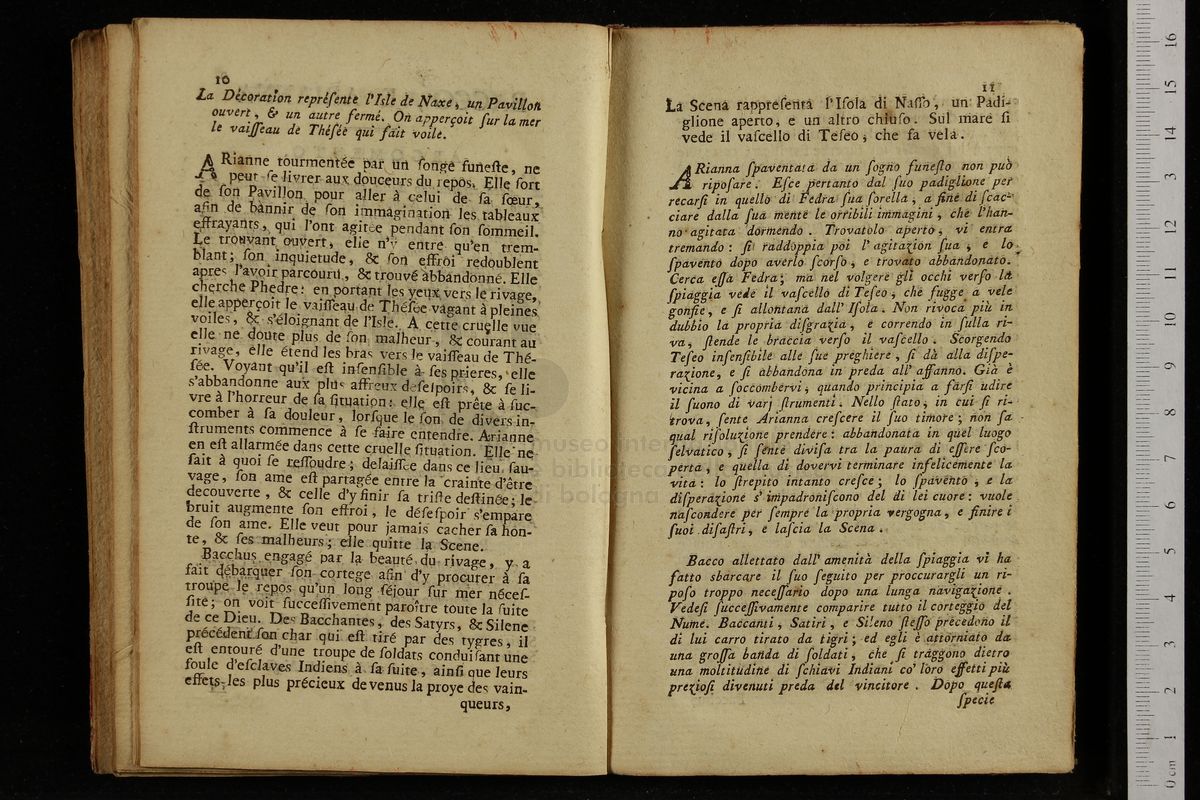 10
La Décoration repréſente l'Isle de Naxe, un Pavillon
ouvert, & un autre fermé. On apperçoit ſur la mer
le vaiſſeau de Théſée qui fait voile.
ARianne tourmentée par un ſonge funeſte, ne
peut ſe livrer aux douceurs du repos. Elle ſort
de ſon Pavillon pour aller à celui de ſa ſœur,
afin de bannir de ſon immagination les tableaux
effrayants, qui l'ont agitée pendant ſon ſommeil.
Le trouvant ouvert, elle n'y entre qu'en trem-
blant; ſon inquietude, & ſon effroi redoublent
apres l'avoir parcouru, & trouvé abbandonné. Elle
cherche Phedre: en portant les yeux vers le rivage,
elle apperçoit le vaiſſeau de Théſée vagant à pleines
voiles, & s'éloignant de l'Isle. A cette cruelle vue
elle ne doute plus de ſon malheur, & courant au
rivage, elle étend les bras vers le vaiſſeau de Thé-
ſée. Voyant qu'il eſt inſenſible à ſes prieres, elle
s'abbandonne aux plus affreux deſeſpoirs, & ſe li-
vre à l'horreur de ſa ſituation: elle eſt prête à ſuc-
comber à ſa douleur, lorſque le ſon de divers in-
ſtruments commence à ſe faire entendre. Arianne
en eſt allarmée dans cette cruelle ſituation. Elle ne
ſait à quoi ſe reſſoudre; delaiſſée dans ce lieu ſau-
vage, ſon ame eſt partagée entre la crainte d'être
decouverte, & celle d'y finir ſa triſte deſtinée; le
bruit augmente ſon effroi, le déſeſpoir s'empare
de ſon ame. Elle veut pour jamais cacher ſa hon-
te, & ſes malheurs; elle quitte la Scene.
Bacchus engagé par la beauté du rivage, y a
fait débarquer ſon cortege afin d'y procurer à ſa
troupe le repos qu'un long ſéjour ſur mer néceſ-
ſite; on voit ſucceſſivement paroître toute la ſuite
de ce Dieu. Des Bacchantes, des Satyrs, & Silene
précédent ſon char qui eſt tiré par des tygres, il
eſt entouré d'une troupe de ſoldats conduiſant une
foule d'eſclaves Indiens à ſa ſuite, ainſi que leurs
effets les plus précieux devenus la proye des vain-
queurs,
11
La Scena rappreſenta l'Iſola di Naſſo, un Padi-
glione aperto, e un altro chiuſo. Sul mare ſi
vede il vaſcello di Teſeo, che fa vela.
ARianna ſpaventata da un ſogno funeſto non può
ripoſare. Eſce pertanto dal ſuo padiglione per
recarſi in quello di Fedra ſua ſorella, a fine di ſcac-
ciare dalla ſua mente le orribili immagini, che l'han-
no agitata dormendo. Trovatolo aperto, vi entra
tremando: ſi raddoppia poi l'agitazion ſua, e lo
ſpavento dopo averlo ſcorſo, e trovato abbandonato.
Cerca eſſa Fedra; ma nel volgere gli occhi verſo la
ſpiaggia vede il vaſcello di Teſeo, che fugge a vele
gonfie, e ſi allontana dall'Iſola. Non rivoca più in
dubbio la propria diſgrazia, e correndo in ſulla ri-
va, ſtende le braccia verſo il vaſcello. Scorgendo
Teſeo inſenſibile alle ſue preghiere, ſi dà alla diſpe-
razione, e ſi abbandona in preda all'affanno. Già è
vicina a ſoccombervi, quando principia a farſi udire
il ſuono di varj ſtrumenti. Nello ſtato, in cui ſi ri-
trova, ſente Arianna creſcere il ſuo timore; non ſa
qual riſoluzione prendere: abbandonata in quel luogo
ſelvatico, ſi ſente diviſa tra la paura di eſſere ſco-
perta, e quella di dovervi terminare infelicemente la
vita: lo ſtrepito intanto creſce; lo ſpavento, e la
diſperazione s'impadroniſcono del di lei cuore: vuole
naſcondere per ſempre la propria vergogna, e finire i
ſuoi diſaſtri, e laſcia la Scena.
Bacco allettato dall'amenità della ſpiaggia vi ha
fatto sbarcare il ſuo ſeguito per proccurargli un ri-
poſo troppo neceſſario dopo una lunga navigazione.
Vedeſi ſucceſſivamente comparire tutto il corteggio del
Nume. Baccanti, Satiri, e Sileno ſteſſo precedono il
di lui carro tirato da tigri; ed egli è attorniato da
una groſſa banda di ſoldati, che ſi traggono dietro
una moltitudine di ſchiavi Indiani co' loro effetti più
prezioſi divenuti preda del vincitore. Dopo queſta
ſpecie